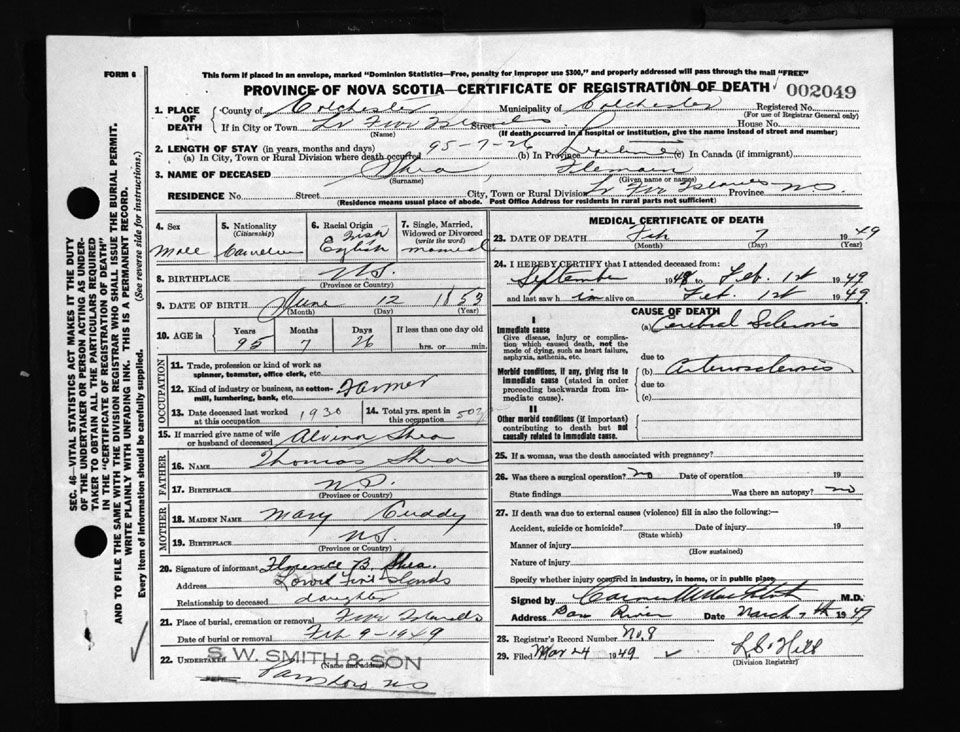 FORM 6
This form if placed in an envelope, marked "Dominion Statistics—Free, penalty for improper use $300," and properly addressed will pass through the mail "FREE"
PROVINCE OF NOVA SCOTIA—CERTIFICATE OF REGISTRATION OF DEATH 002049
1. PLACE OF DEATH County of Colchester Municipality of Colchester Registered No.
(For use of Registrar General only)
If in City or Town Lr Five Islands Street House No.
(Name) (If death occurred in a hospital or institution, give the name instead of street and number)
2. LENGTH OF STAY (in years, months and days)
(a) In City, Town or Rural Division where death occurred 95-7-26 (b) In Province Lifetime (c) In Canada (if immigrant)
3. NAME OF DECEASED Shea
(Surname) (Given name or names)
RESIDENCE No. Street City, Town or Rural Division Lr Five Islands Province N.S.
(Residence means usual place of abode. Post Office Address for residents in rural parts not sufficient)
4. Sex Male
5. Nationality (Citizenship) Canadian
6. Racial Origin Irish English
7. Single, Married, Widowed or Divorced (write the word) married
8. BIRTHPLACE N.S.
(Province or Country)
9. DATE OF BIRTH June 12 1853
(Month) (Day) (Year)
10. AGE in Years Months Days If less than one day old
95 7 26 hrs. or min.
OCCUPATION
11. Trade, profession or kind of work as spinner, teamster, office clerk, etc.
12. Kind of industry or business, as cotton-mill, lumbering, bank, etc. Farmer
13. Date deceased last worked at this occupation 1930
14. Total yrs. spent in this occupation 50
15. If married give name of wife or husband of deceased Alvina Shea
FATHER
16. NAME Thomas Shea
17. BIRTHPLACE N.S.
(Province or Country)
MOTHER
18. MAIDEN NAME Mary Cuddy
19. BIRTHPLACE N.S.
(Province or Country)
20. Signature of informant Florence B. Shea
Address Lower Five Islands
Relationship to deceased daughter
21. Place of burial, cremation or removal Five Islands
Date of burial or removal Feb 9-1949
22. UNDERTAKER S. W. SMITH & SON
(Name and address)
Parrsboro NS
MEDICAL CERTIFICATE OF DEATH
23. DATE OF DEATH Feb 7 1949
(Month) (Day) (Year)
24. I HEREBY CERTIFY that I attended deceased from:
September 1948 to Feb. 1st 1949
and last saw him alive on Feb. 1st 1949
CAUSE OF DEATH
I
Immediate cause
Give disease, injury or complication which caused death, not the mode of dying, such as heart failure, asphyxia, asthenia, etc.
(a) Cerebral Sclerosis
due to
Morbid conditions, if any, giving rise to immediate cause (stated in order proceeding backwards from immediate cause).
(b) Arteriosclerosis
due to
(c)
II
Other morbid conditions (if important) contributing to death but not causally related to immediate cause.
25. If a woman, was the death associated with pregnancy?
26. Was there a surgical operation? no Date of operation 19
State findings Was there an autopsy? no
27. If death was due to external causes (violence) fill in also the following:—
Accident, suicide or homicide? Date of injury 19
(State which)
Manner of injury
(How sustained)
Nature of injury
Specify whether injury occurred in industry, in home, or in public place
Signed by M.D.
Address Bass River Date March 7th 1949
28. Registrar's Record Number No. 8
29. Filed Mar 24 1949 L.C. Hill
(Division Registrar)
SEC. 46—VITAL STATISTICS ACT MAKES IT THE DUTY
OF THE UNDERTAKER OR PERSON ACTING AS UNDER-
TAKER TO OBTAIN ALL THE PARTICULARS REQUIRED
IN THE "CERTIFICATE OF REGISTRATION OF DEATH"
AND TO FILE THE SAME WITH THE DIVISION REGISTRAR WHO SHALL ISSUE THE BURIAL PERMIT.
WRITE PLAINLY WITH UNFADING INK. THIS IS A PERMANENT RECORD.
Every item of information should be carefully supplied. (See reverse side for instructions.)